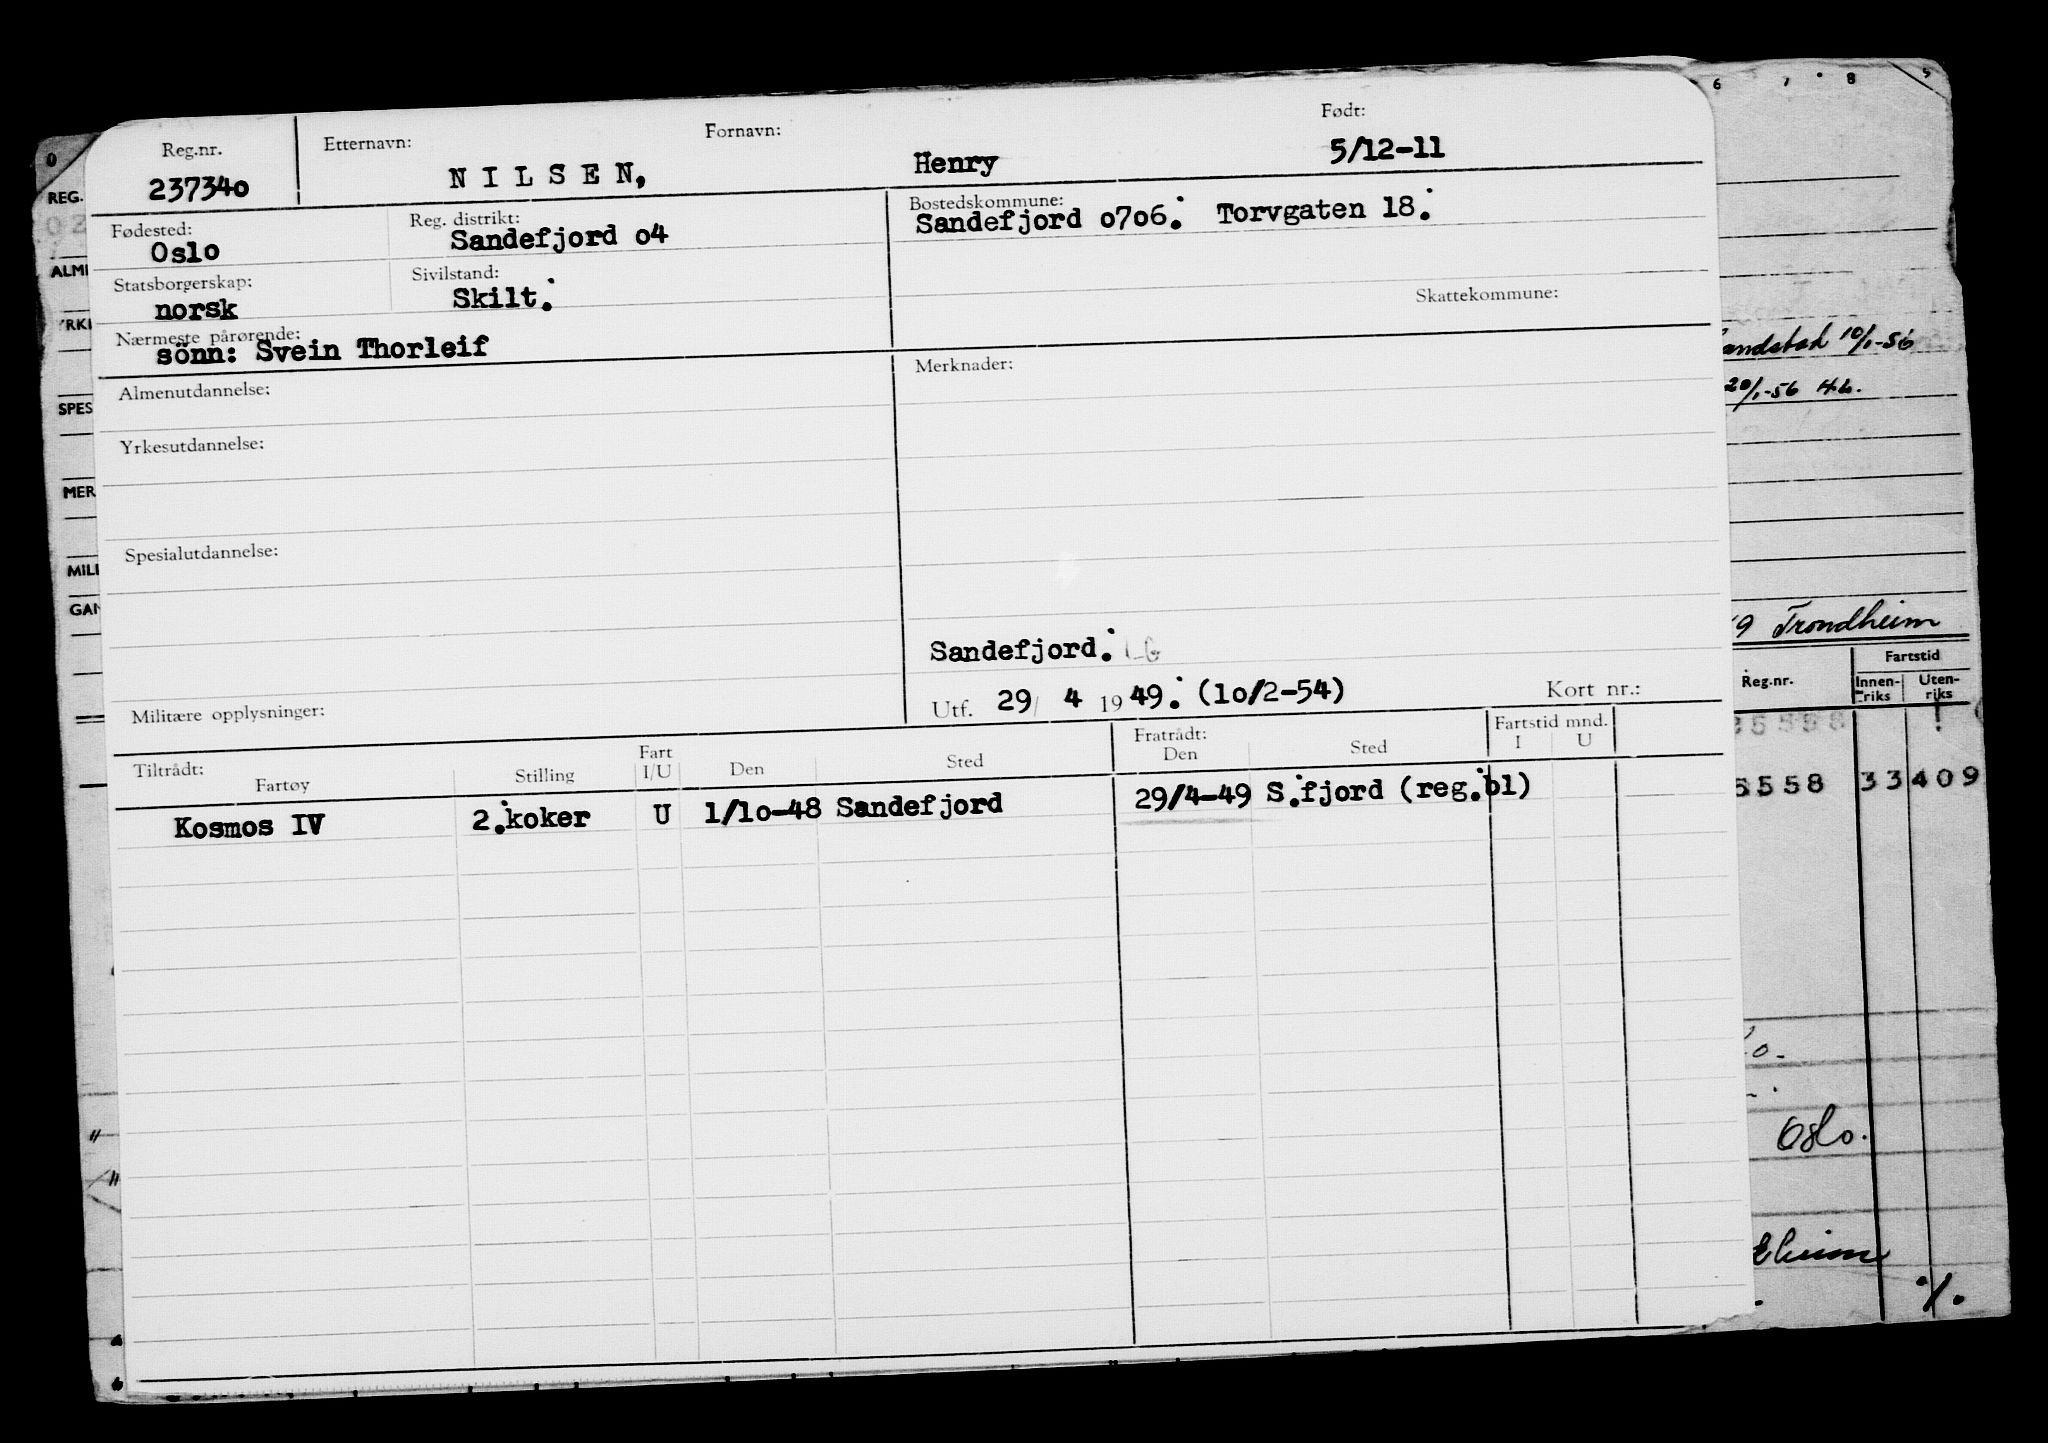 Reg.nr. Etternavn: Fornavn: Født:
237340 NILSEN, Henry 5/12-11
Fødested: Reg. distrikt: Bostedskommune:
Oslo Sandefjord o4 Sandefjord o7o6. Torvgaten 18.
Statsborgerskap: Sivilstand: Skattekommune:
norsk Skilt.
Nærmeste pårørende:
sönn: Svein Thorleif
Almenutdannelse: Merknader:
Yrkesutdannelse:
Spesialutdannelse:
Sandefjord.
Militære opplysninger: Utf. 29/ 4 1949. (lo/2-54) Kort nr.:
Tiltrådt: Fratrådt: Fartstid mnd.
Fartøy Stilling Fart I/U Den Sted Den Sted I U
Kosmos IV 2.koker U 1/lo-48 Sandefjord 29/4-49 S.fjord (reg.bl)
0
REG.
ALM
YRK
SPES
MER
MILI
GAN
6 7 8
10/1-56
20/1-56 H.b.
9 Trondheim
Reg.nr. Fartstid
Innen-riks Uten-riks
5558 33 409
Oslo.